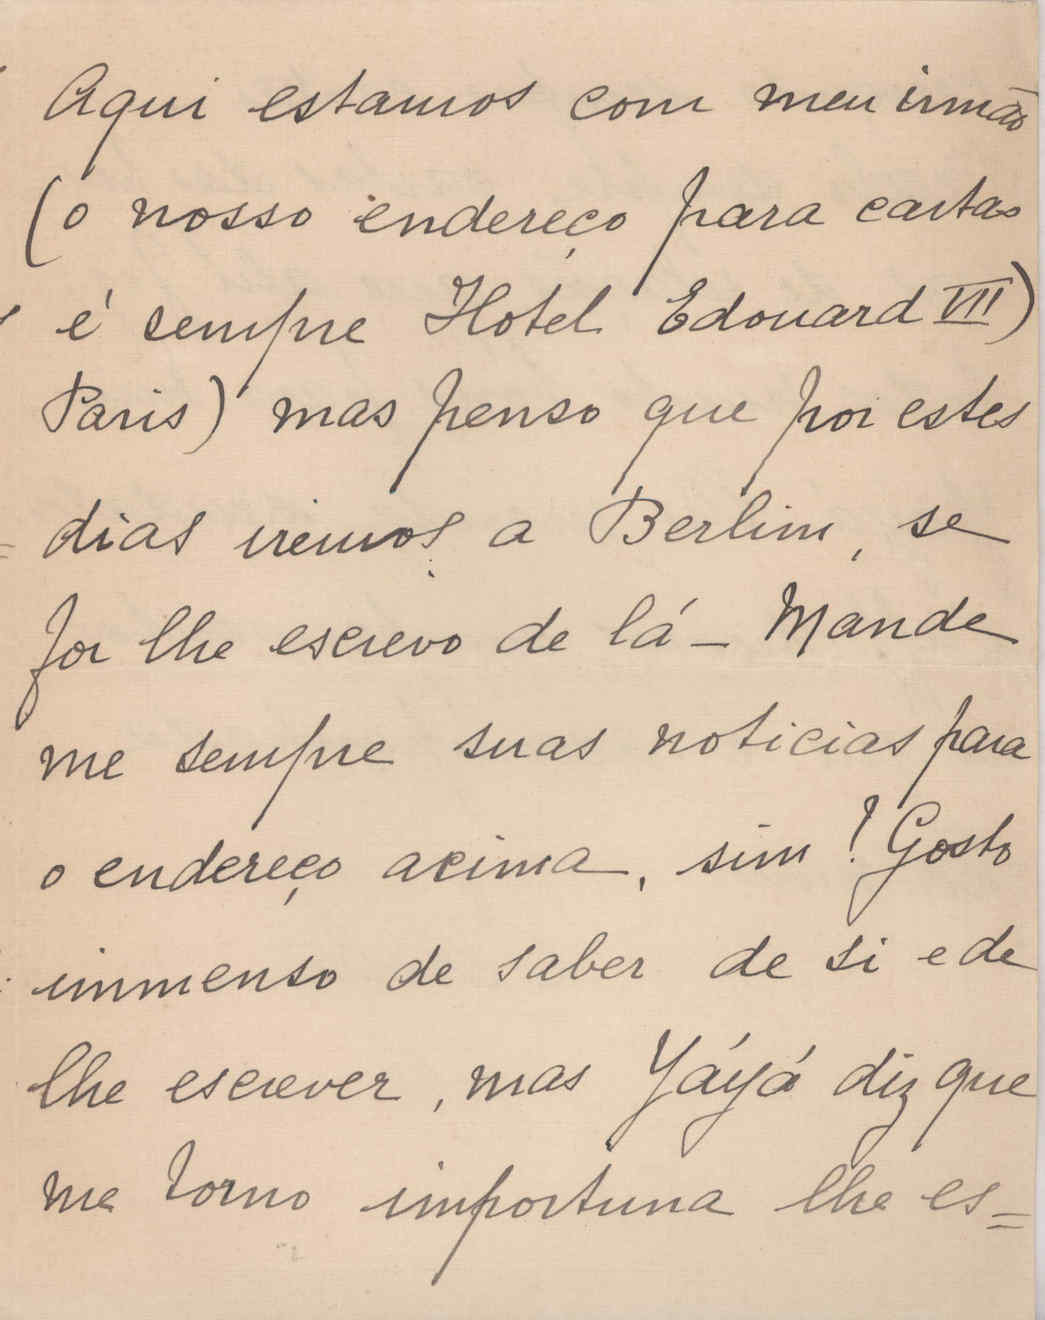 Aqui estamos com meu irmão
(o nosso endereço para cartas
é sempre Hotel Edouard VII)
Paris) mas penso que por estes
dias iremos a Berlim, se
for lhe escrevo de lá — Mande
me sempre suas noticias para
o endereço acima, sim! Gosto
immenso de saber de si e de
lhe escrever, mas Yáyá diz que
me torno importuna lhe es=